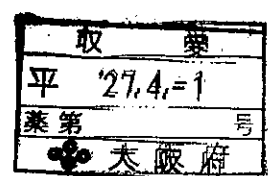 収受
平 '27.4.-1
薬第 号
大阪府